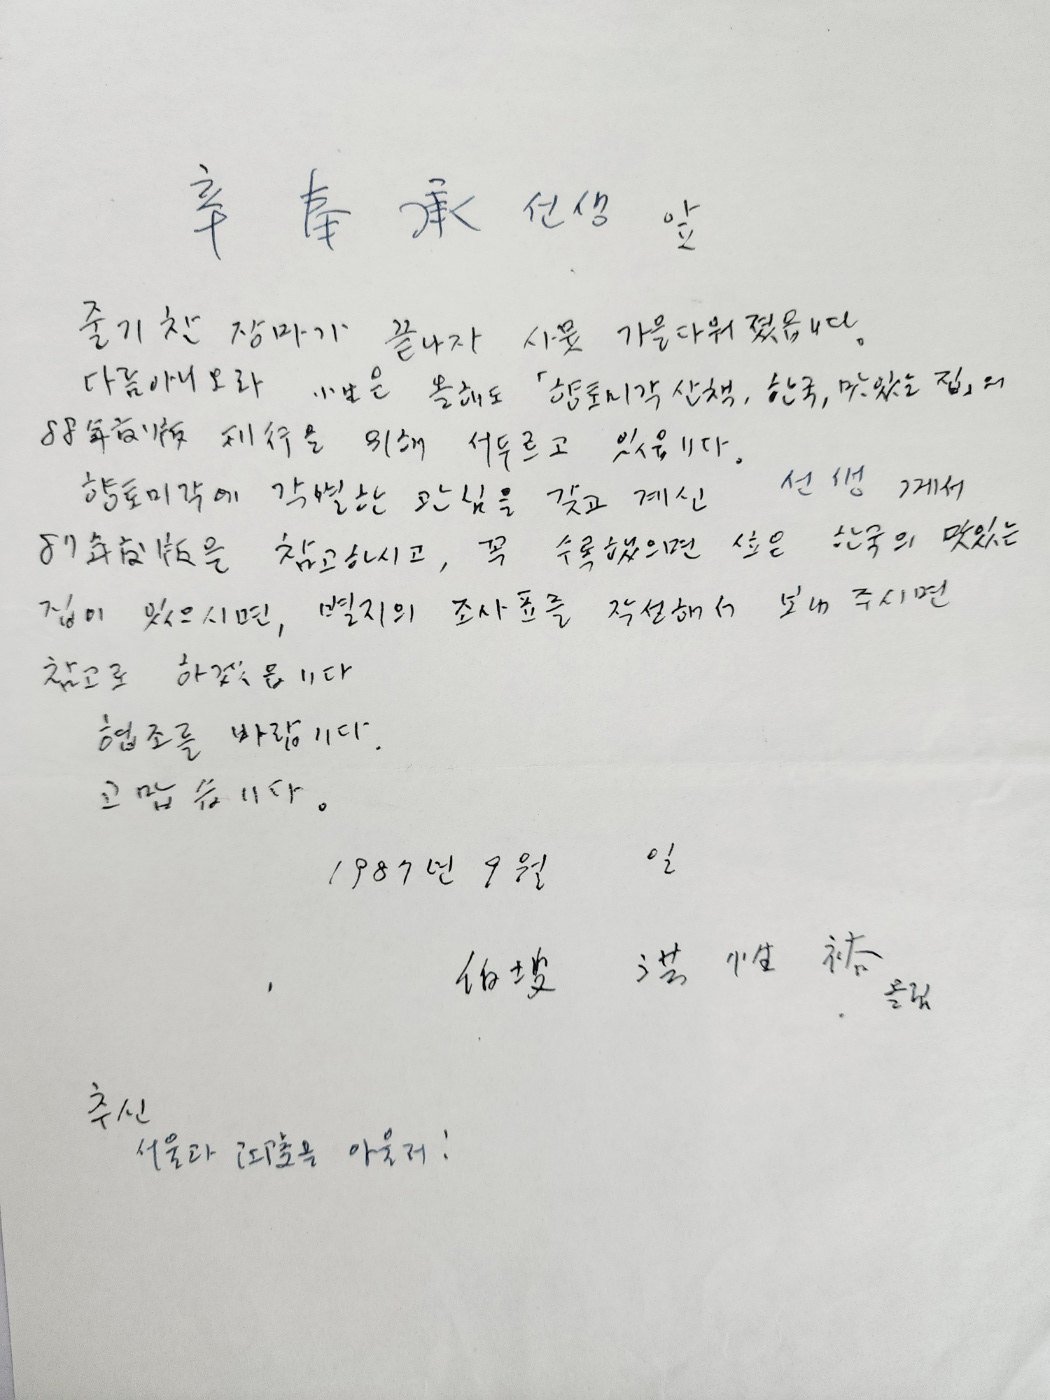 辛奉承 선생 앞
줄기찬 장마가 끝나자 사뭇 가을다워졌읍니다.
다름아니오라 小生은 올해도 「향토미각산책, 한국, 맛있는 집」의
88年改訂版 刊行을 위해 서두르고 있읍니다.
향토미각에 각별한 관심을 갖고 계신 선생께서
87年改訂版을 참고하시고, 꼭 수록했으면 싶은 한국의 맛있는
집이 있으시면, 별지의 조사표를 작성해서 보내주시면
참고로 하겠읍니다
협조를 바랍니다.
고맙습니다.
1987년 9월 일
伯坡 洪性裕
올림
추신
서울과 江陵을 아울러!